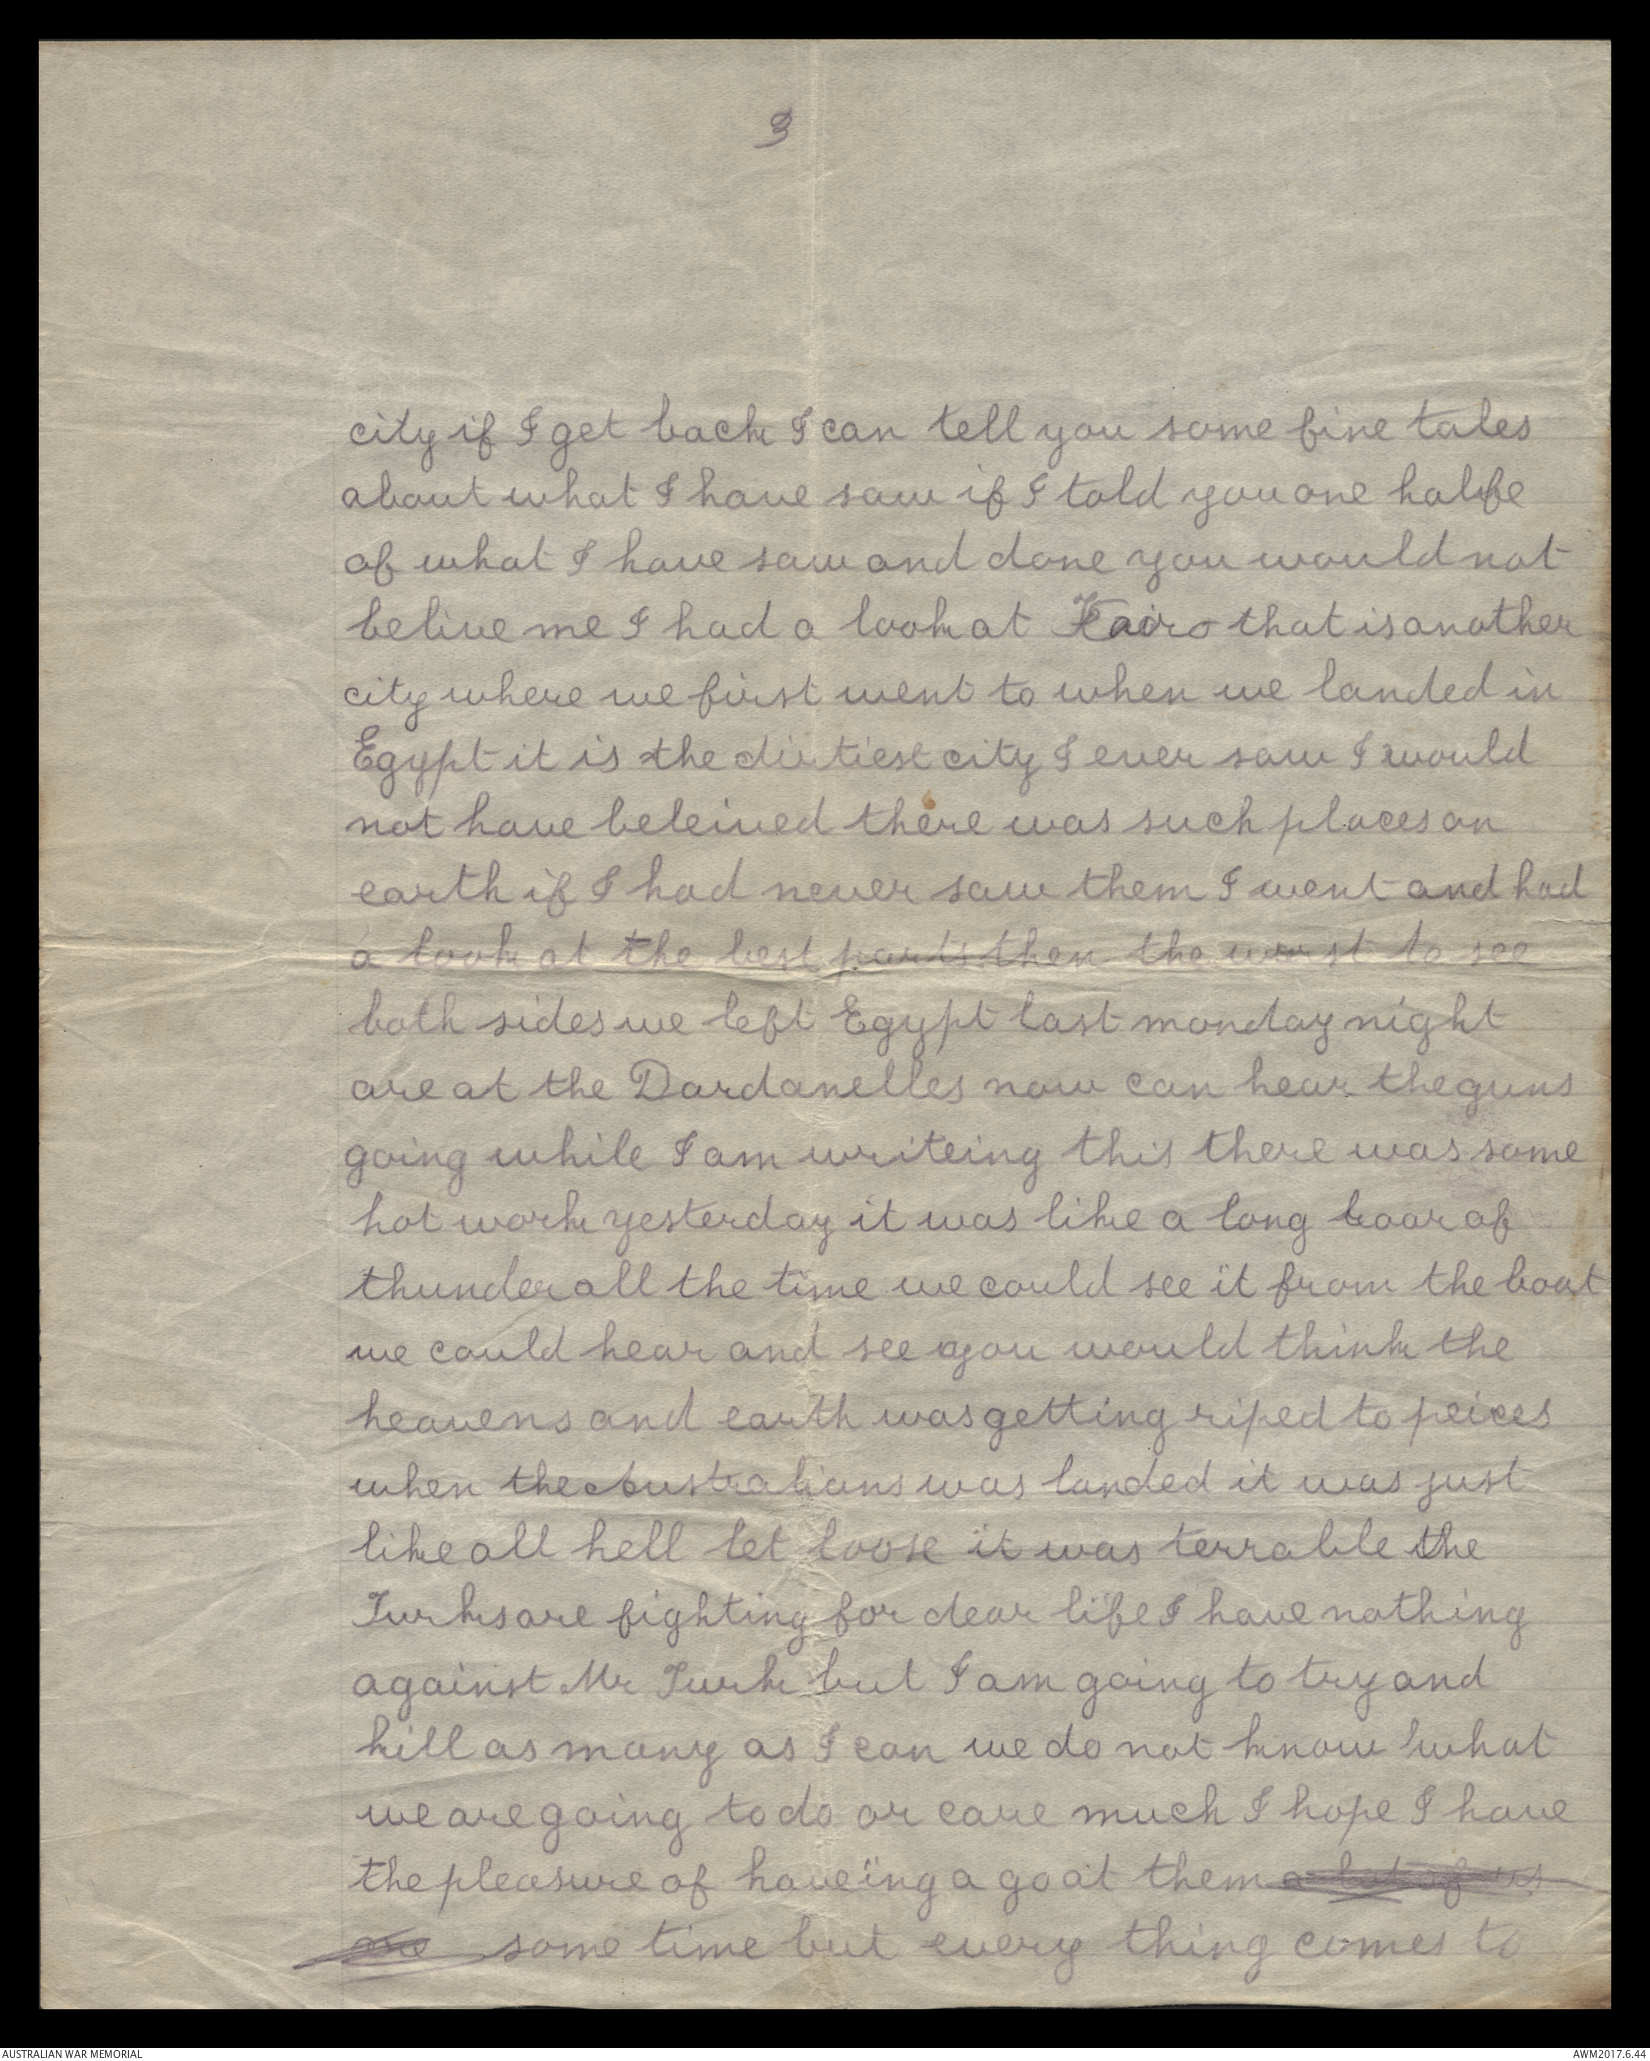 3
city if I get back I can tell you some fine tales
about what I have saw if I told you one halfe
of what I have saw and done you would not
belive me I had a look at Kairo that is another
city where we first went to when we landed in
Egypt it is the dirtiest city I ever saw I would
not have beleived there was such places on
earth if I had never saw them I went and had
a look at the best parts then the worst to see
both sides we left Egypt last monday night
are at the Dardanelles now can hear the guns
going while I am writeing this there was some
hot work yesterday it was like a long roar of
thunder all the time we could see it from the boat
we could hear and see you would think the
heavens and earth was getting riped to peices
when the Australians was landed it was just
like all hell let loose it was terrable the
Turks are fighting for dear life I have nothing
against Mr Turk but I am going to try and
kill as many as I can we do not know what
we are going to do or care much I hope I have
the pleasure of haveing a go at them a lot of us
some time but every thing comes to
AUSTRALIAN WAR MEMORIAL
AWM2017.6.44